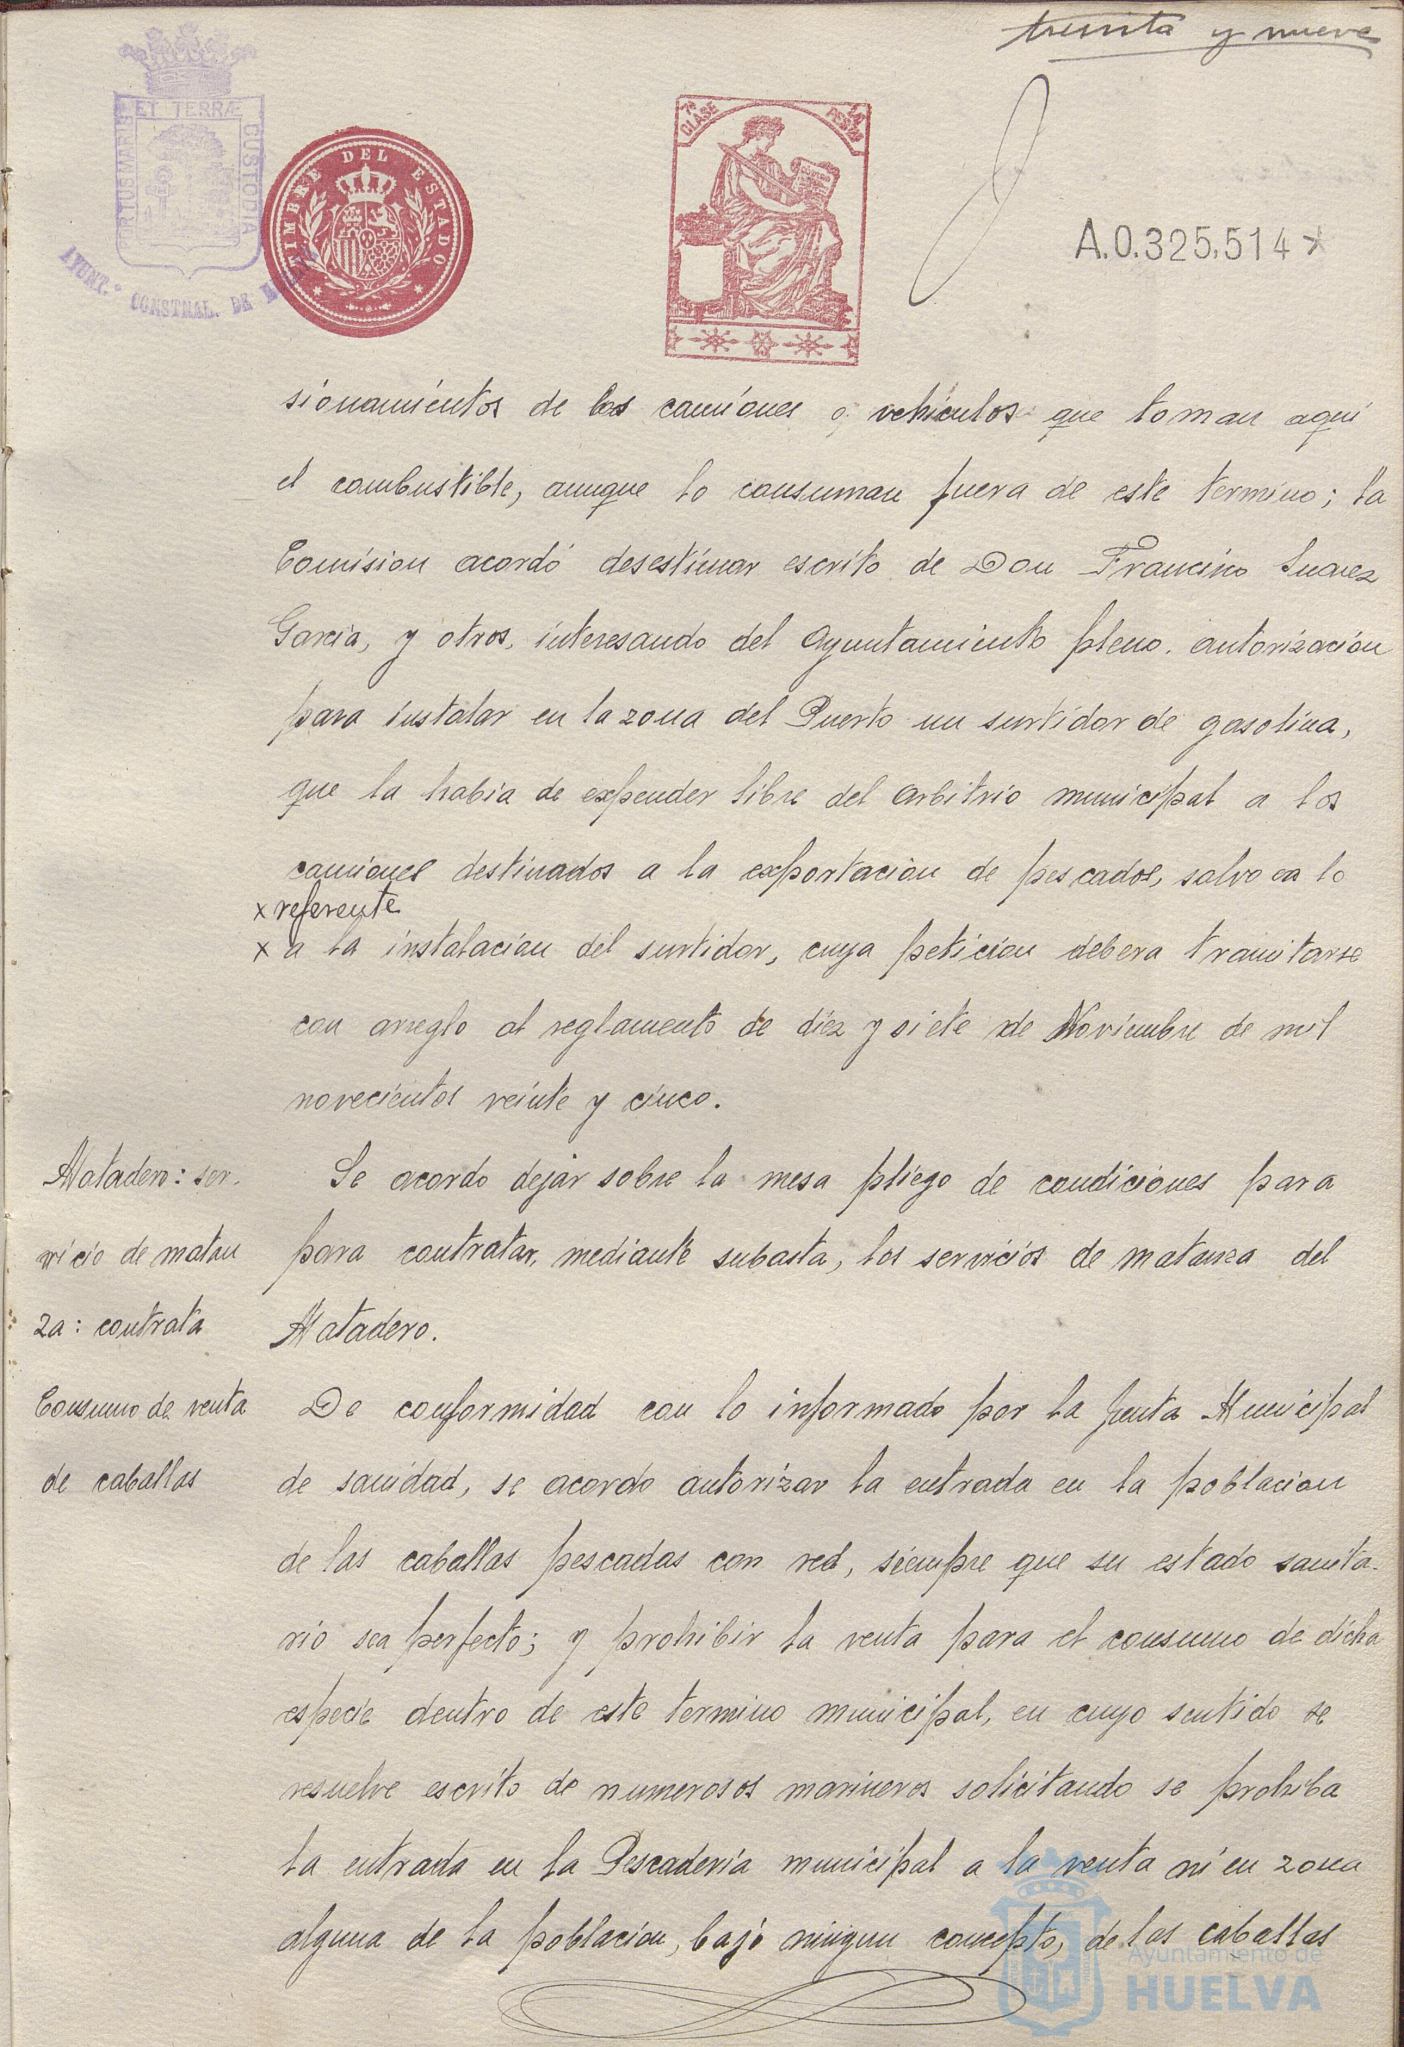 treinta y nueve
ET TERRÆ
CUSTODIA
PORTUS MARIS
AYUNT.º CONSTNAL. DE
TIMBRE DEL ESTADO
7ª CLASE
A.0.325,514
sionamientos de los camiones o vehiculos que toman aqui
el combustible, aunque lo consuman fuera de este termino; la
Comision acordó desestimar escrito de Don Francisco Suarez
Garcia, y otros, interesando del Ayuntamiento pleno, autorizacion
para instalar en la zona del Puerto un surtidor de gasolina,
que la habia de expender libre del arbitrio municipal a los
camiones destinados a la exportacion de pescados, salvo en lo
x referente
x a la instalacion del surtidor, cuya peticion debera tramitarse
con arreglo al reglamento de diez y siete de Noviembre de mil
novecientos veinte y cinco.
Matadero: ser-
vicio de matan
za: contrata
Se acordo dejar sobre la mesa pliego de condiciones para
para contratar, mediante subasta, los servicios de matanza del
Matadero.
Consumo de venta
de caballas
De conformidad con lo informado por la Junta Municipal
de sanidad, se acordo autorizar la entrada en la poblacion
de las caballas pescadas con red, siempre que su estado sanita-
rio sea perfecto; y prohibir la venta para el consumo de dicha
especie dentro de este termino municipal, en cuyo sentido se
resuelve escrito de numerosos marineros solicitando se prohiba
la entrada en la Pescaderia municipal a la venta ni en zona
alguna de la poblacion, bajo ningun concepto, de las caballas
Ayuntamiento de
HUELVA